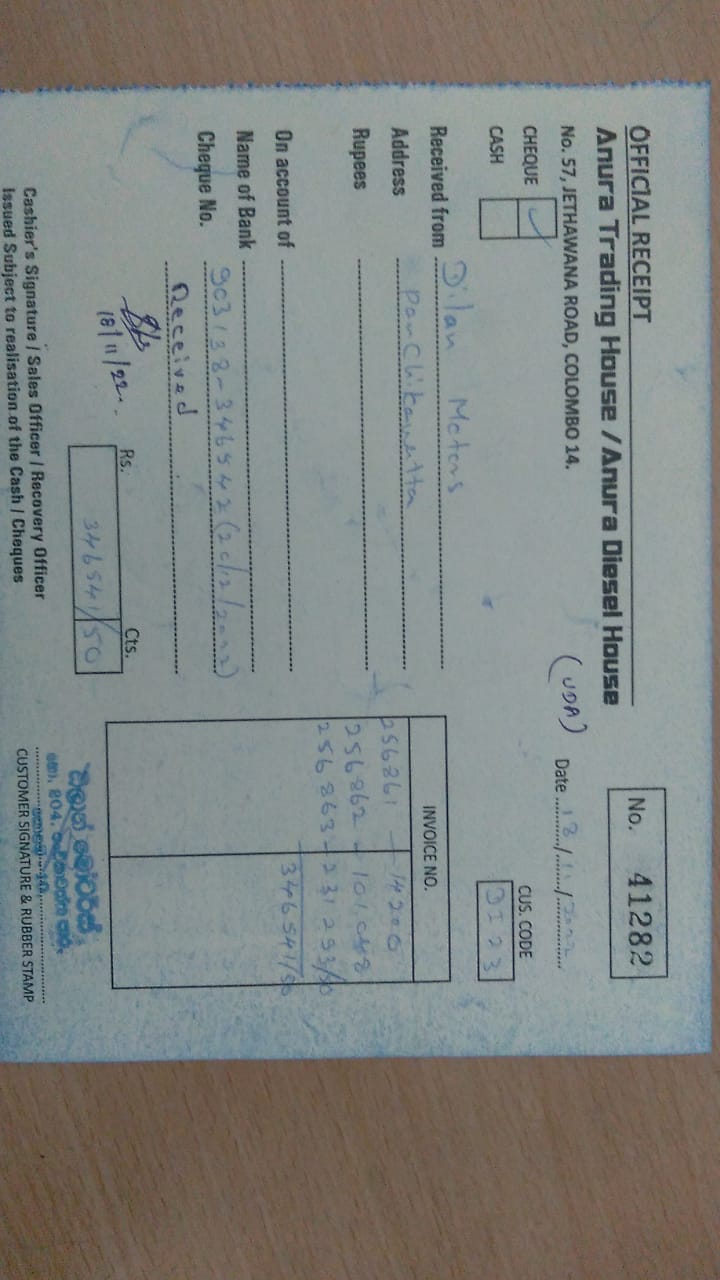 OFFICIAL RECEIPT
No. 41282
Anura Trading House / Anura Diesel House
(UDA)
No. 57, JETHAWANA ROAD, COLOMBO 14.
Date 18/11/2022
CHEQUE ✓
CASH
CUS. CODE
DI 23
Received from Dilan Motors
Address Panchikawatta
Rupees
On account of
Name of Bank
Cheque No. 903138-346542(20/12/2022)
Received
18/11/22.
Rs. Cts.
346541/50
INVOICE NO.
256861 - 14200
256862 - 101,048
256863 - 231293/50
346541/50
Cashier's Signature / Sales Officer / Recovery Officer
Issued Subject to realisation of the Cash / Cheques
CUSTOMER SIGNATURE & RUBBER STAMP